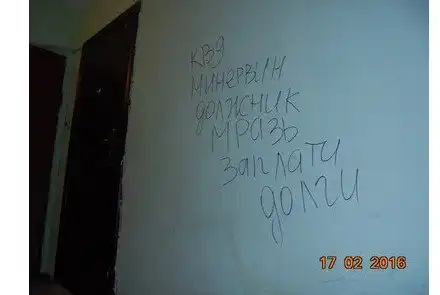 КВ9
МИНЕРВИН
ДОЛЖНИК
МРАЗЬ
ЗАПЛАТИ
ДОЛГИ
17 02 2016